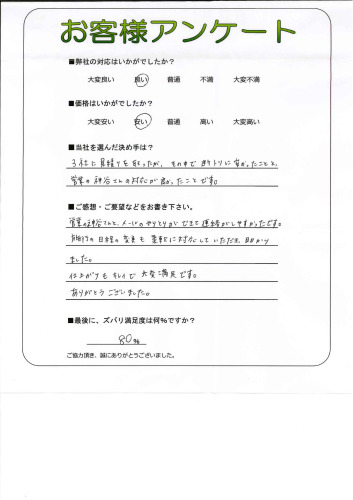 お客様アンケート
■弊社の対応はいかがでしたか?
大変良い 良い 普通 不満 大変不満
■価格はいかがでしたか?
大変安い 安い 普通 高い 大変高い
■当社を選んだ決め手は?
3社に見積りを取ったが、その中で 的トリに安かったことと、
営業の神谷さんの対応が良かったことです。
■ご感想・ご要望などをお書き下さい。
営業の神谷さんと、メールのやりとりができて連絡がしやすかったです。
の日程の変更も 対応していただき、助かり
ました。
仕上がりもキレイで 大変満足です。
ありがとうございました。
■最後に、ズバリ満足度は何%ですか?
80%
ご協力頂き、誠にありがとうございました。